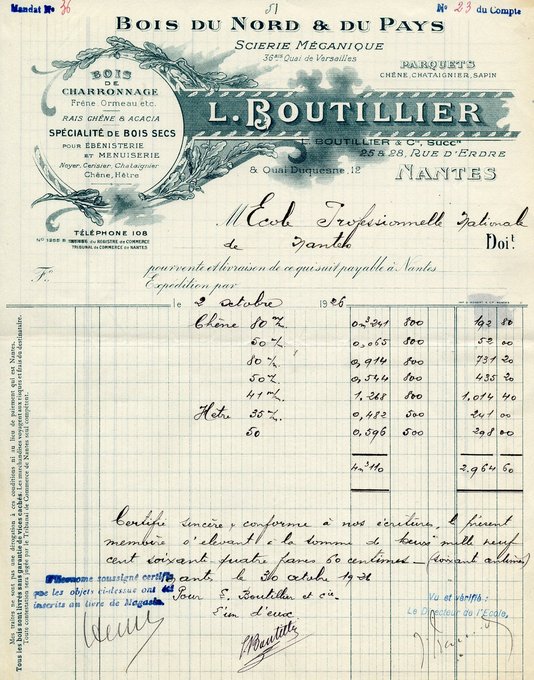 Mandat No 36
51
No 23 du Compte
BOIS DU NORD & DU PAYS
SCIERIE MÉCANIQUE
36 bis Quai de Versailles
PARQUETS
CHÊNE, CHATAIGNIER, SAPIN
BOIS
DE
CHARRONNAGE
Frêne Ormeau etc.
RAIS CHÊNE & ACACIA
SPÉCIALITÉ DE BOIS SECS
POUR ÉBÉNISTERIE
ET MENUISERIE
Noyer, Cerisier, Chataignier
Chêne, Hêtre
L. BOUTILLIER
L. BOUTILLIER & Cie, Succrs
25 & 28, RUE D'ERDRE
& Quai Duquesne, 12
NANTES
TÉLÉPHONE 108
du REGISTRE de COMMERCE
TRIBUNAL de COMMERCE de NANTES
M Ecole Professionnelle Nationale
de Nantes Doit
Fo
pour vente et livraison de ce qui suit payable à Nantes
Expédition par
le 2 octobre 1926
Chêne 80 m/m 0m3 241 800 192 80
50 m/m 0,065 800 52 00
80 m/m 0,914 800 731 20
50 m/m 0,544 800 435 20
41 m/m 1,268 800 1,014 40
Hetre 35 m/m 0,482 500 241 00
50 0,596 500 298 00
4m3 110 2,964 60
Certifié sincère & conforme à nos écritures, le présent
memoire s'elevant à la somme de deux mille neuf
cent soixante-quatre francs 60 centimes (soixant centimes)
Nantes le 30 octobre 1926
Pour L. Boutillier et Cie
L'un d'eux
L. Boutillier
L'Econome soussigné certifie
que les objets ci-dessus ont été
inscrits au livre de Magasin
Vu et vérifié :
Le Directeur de l'Ecole,
Mes traites ne sont pas une dérogation à ces conditions ni au lieu de paiement qui est Nantes.
Tous les bois sont livrés sans garantie de vices cachés. Les marchandises voyagent aux risques et frais du destinataire.
Toute contestation sera jugée par le Tribunal de Commerce de Nantes seul compétent.